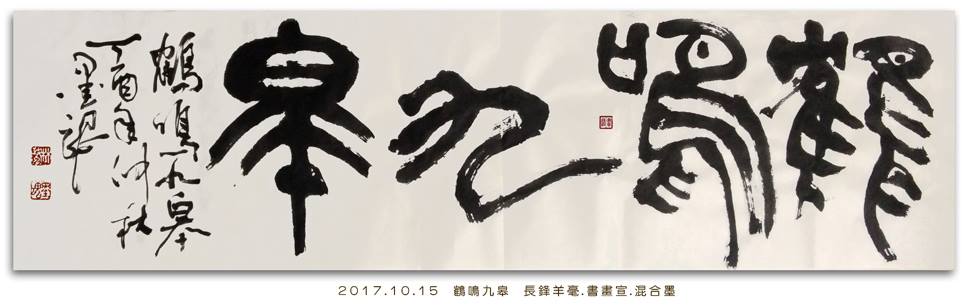 鶴鳴九皋
鶴鳴九皋
丁酉年仲秋
2017.10.15 鶴鳴九皋 長鋒羊毫.書畫宣.混合墨